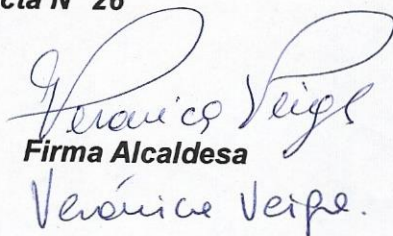 cta N° 26
Veronica Veiga
Firma Alcaldesa
Verónica Veiga.